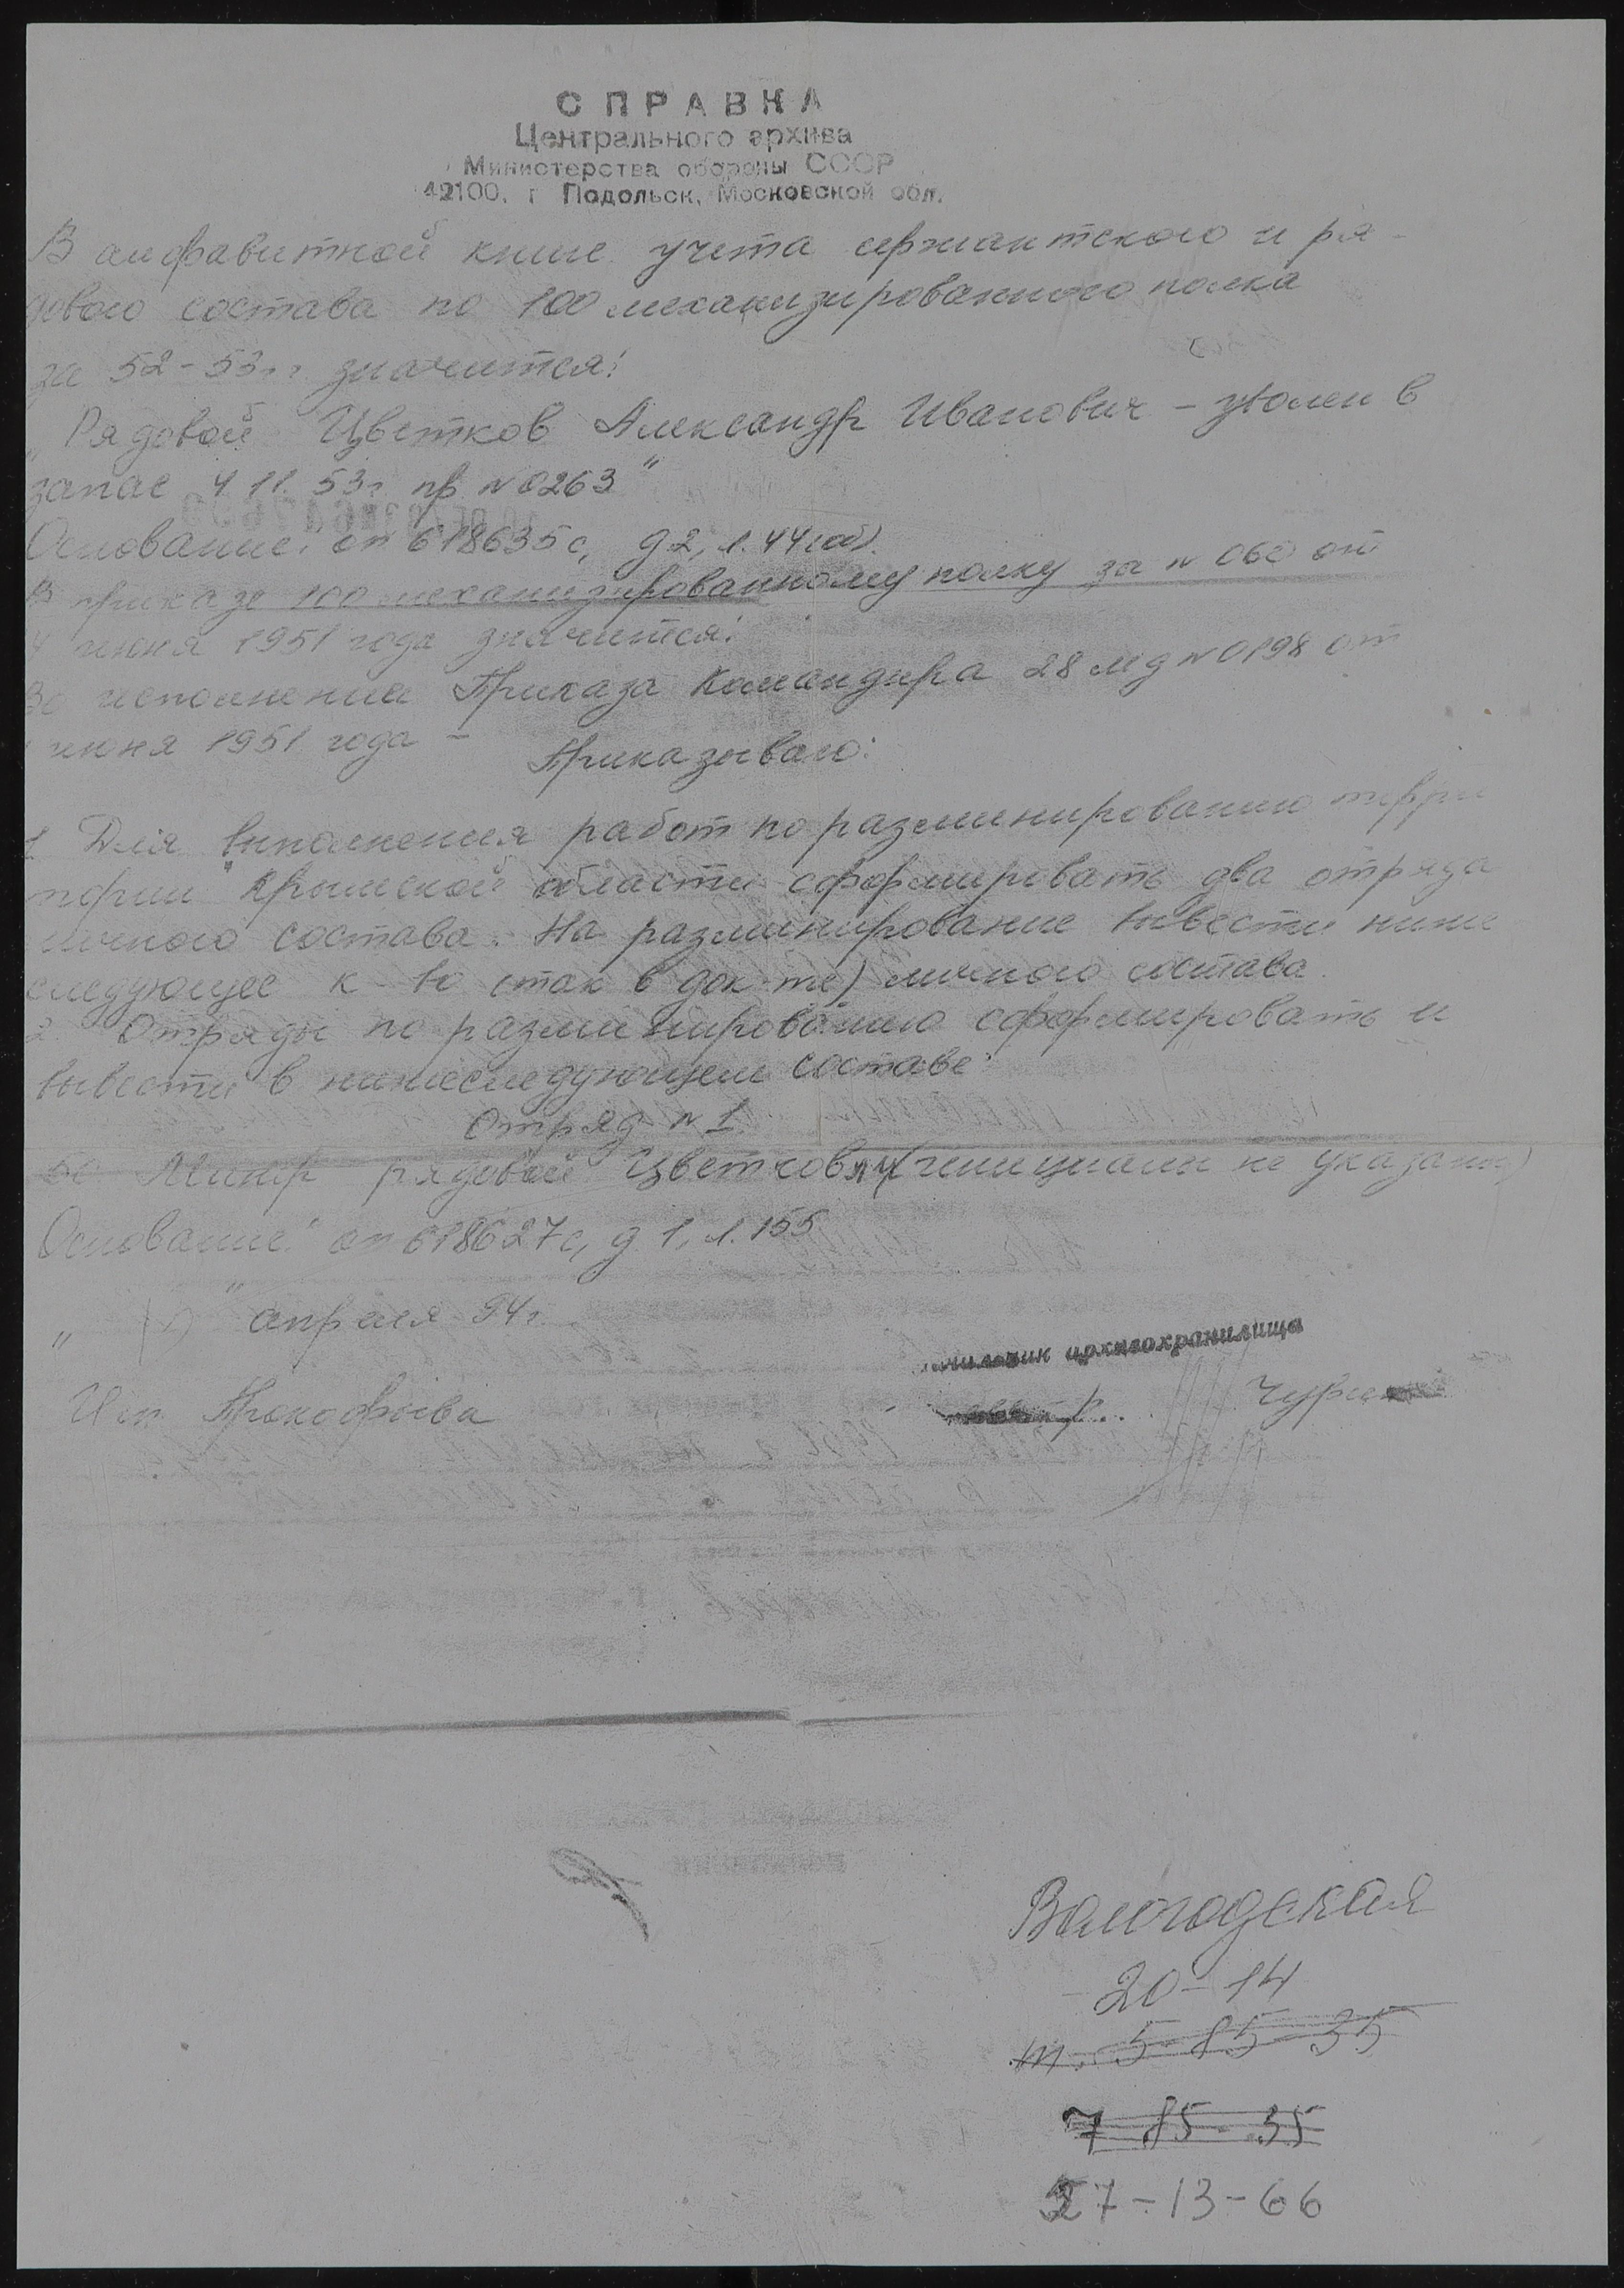 СПРАВКА
Центрального архива
Министерства обороны СССР
42100, г Подольск, Московской обл.
В алфавитной книге учета сержантского и ря-
дового состава по 100 механизированного полка
за 52-53 гг значится:
"Рядовой Цветков Александр Иванович - уволен в
запас 4 11. 53г пр N 0263"
Основание: оп 618635с, д 2, л. 44(об).
В приказе 100 механизированному полку за N 060 от
4 июня 1951 года значится:
Во исполнении Приказа Командира 28 мд N 0198 от
июня 1951 года -
Приказываю:
1. Для выполнения работ по разминированию терри
тории Крымской области сформировать два отряда
личного состава. На разминирование вывести ниже
следующее к-во (так в док-те) личного состава.
2. Отряды по разминированию сформировать и
вывести в нижеследующем составе:
Отряд N 1.
50 Минер рядовой Цветков (инициалы не указаны)
Основание: оп 618627с, д 1, л. 155
" " апреля 94г.
архивохранилища
Исп Прокофьева
Вологодская
20-14
т. 5-85-35
7-85-35
27-13-66